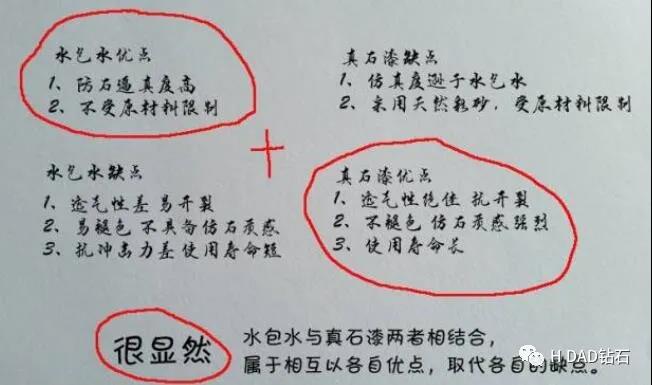 水包水优点
1、防石逼真度高
2、不受原材料限制
真石漆缺点
1、仿真度逊于水包水
2、采用天然彩砂，受原材料限制
水包水缺点
1、透气性差 易开裂
2、易褪色 不具备仿石质感
3、抗冲击力差 使用寿命短
真石漆优点
1、透气性绝佳 抗开裂
2、不褪色 仿石质感强烈
3、使用寿命长
很显然
水包水与真石漆两者相结合，
属于相互以各自优点，取代各自的缺点。
H DAD钻石